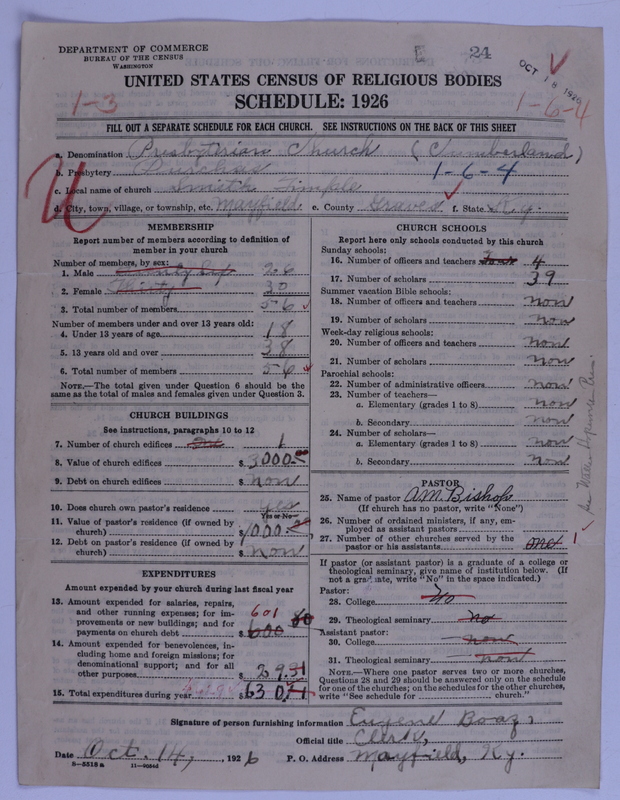 DEPARTMENT OF COMMERCE
BUREAU OF THE CENSUS
WASHINGTON
24
OCT 18 1926
UNITED STATES CENSUS OF RELIGIOUS BODIES
SCHEDULE: 1926
1-3
1-6-4
FILL OUT A SEPARATE SCHEDULE FOR EACH CHURCH. SEE INSTRUCTIONS ON THE BACK OF THIS SHEET
a. Denomination Presbyterian Church (Cumberland)
b. Presbytery Purchase 1-6-4
c. Local name of church Smith Timple
d. City, town, village, or township, etc. Mayfield e. County Graves f. State Ky.
MEMBERSHIP
Report number of members according to definition of member in your church
Number of members, by sex:
1. Male Twenty Six 26
2. Female Thirty 30
3. Total number of members 56
Number of members under and over 13 years old:
4. Under 13 years of age 18
5. 13 years old and over 38
6. Total number of members 56
NOTE.—The total given under Question 6 should be the same as the total of males and females given under Question 3.
CHURCH BUILDINGS
See instructions, paragraphs 10 to 12
7. Number of church edifices One 1
8. Value of church edifices $ 3000.00
9. Debt on church edifices $ non
10. Does church own pastor's residence yes
Yes or No
11. Value of pastor's residence (if owned by church) $ 1000.00
12. Debt on pastor's residence (if owned by church) $ non
EXPENDITURES
Amount expended by your church during last fiscal year
13. Amount expended for salaries, repairs, and other running expenses; for improvements or new buildings; and for payments on church debt $ 600 601
14. Amount expended for benevolences, including home and foreign missions; for denominational support; and for all other purposes $ 29.31
15. Total expenditures during year $ 630.71
CHURCH SCHOOLS
Report here only schools conducted by this church
Sunday schools:
16. Number of officers and teachers four 4
17. Number of scholars 39
Summer vacation Bible schools:
18. Number of officers and teachers non
19. Number of scholars non
Week-day religious schools:
20. Number of officers and teachers non
21. Number of scholars non
Parochial schools:
22. Number of administrative officers non
23. Number of teachers—
a. Elementary (grades 1 to 8) non
b. Secondary non
24. Number of scholars—
a. Elementary (grades 1 to 8) non
b. Secondary non
PASTOR
25. Name of pastor A.M. Bishop
(If church has no pastor, write "None")
26. Number of ordained ministers, if any, employed as assistant pastors
27. Number of other churches served by the pastor or his assistants one 1
If pastor (or assistant pastor) is a graduate of a college or theological seminary, give name of institution below. (If not a graduate, write "No" in the space indicated.)
Pastor:
28. College No
29. Theological seminary No
Assistant pastor:
30. College non
31. Theological seminary non
NOTE.—Where one pastor serves two or more churches, Questions 28 and 29 should be answered only on the schedule for one of the churches; on the schedules for the other churches, write "See schedule for church."
Signature of person furnishing information Eugene Boaz,
Official title Clerk,
Date Oct. 14, 1926 P. O. Address Mayfield, Ky.
8-5518a 11-9054d